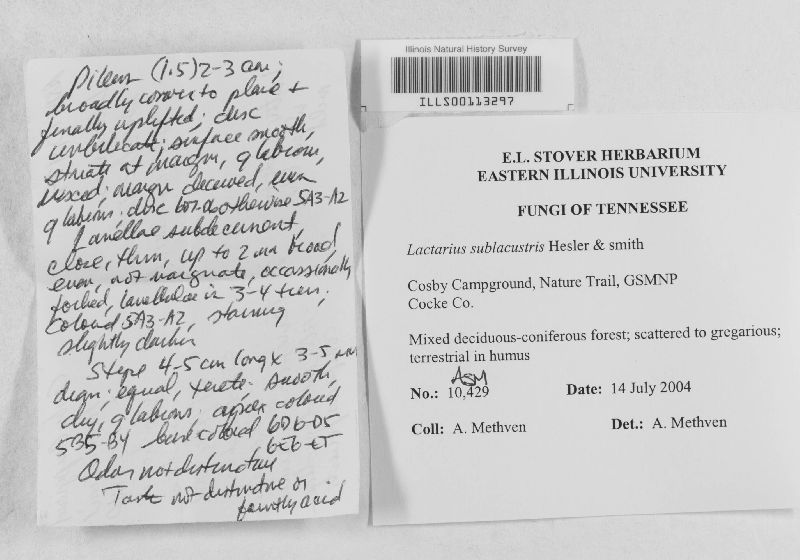 Pileus (1.5)2-3 cm;
broadly convex to plane +
finally uplifted; disc
umbilicate; surface smooth,
striate at margin, glabrous,
viscid; margin decurved, even
glabrous. disc otherwise 5A3-A2
Lamellae subdecurrent,
close, thin, up to 2 mm broad,
even, not marginate, occassionally
forked, lamellulae in 3-4 tiers.
colored 5A3-A2, staining
slightly darker
Stipe 4-5 cm long x 3-5 mm
diam; equal, terete. smooth,
dry, glabrous; apex colored
5B5-B4 base colored 6D6-D5
Odor not distinctive
Taste not distinctive or
faintly acid
Illinois Natural History Survey
ILLS00113297
E.L. STOVER HERBARIUM
EASTERN ILLINOIS UNIVERSITY
FUNGI OF TENNESSEE
Lactarius sublacustris Hesler & smith
Cosby Campground, Nature Trail, GSMNP
Cocke Co.
Mixed deciduous-coniferous forest; scattered to gregarious;
terrestrial in humus
ASM
No.: 10,429 Date: 14 July 2004
Coll: A. Methven Det.: A. Methven